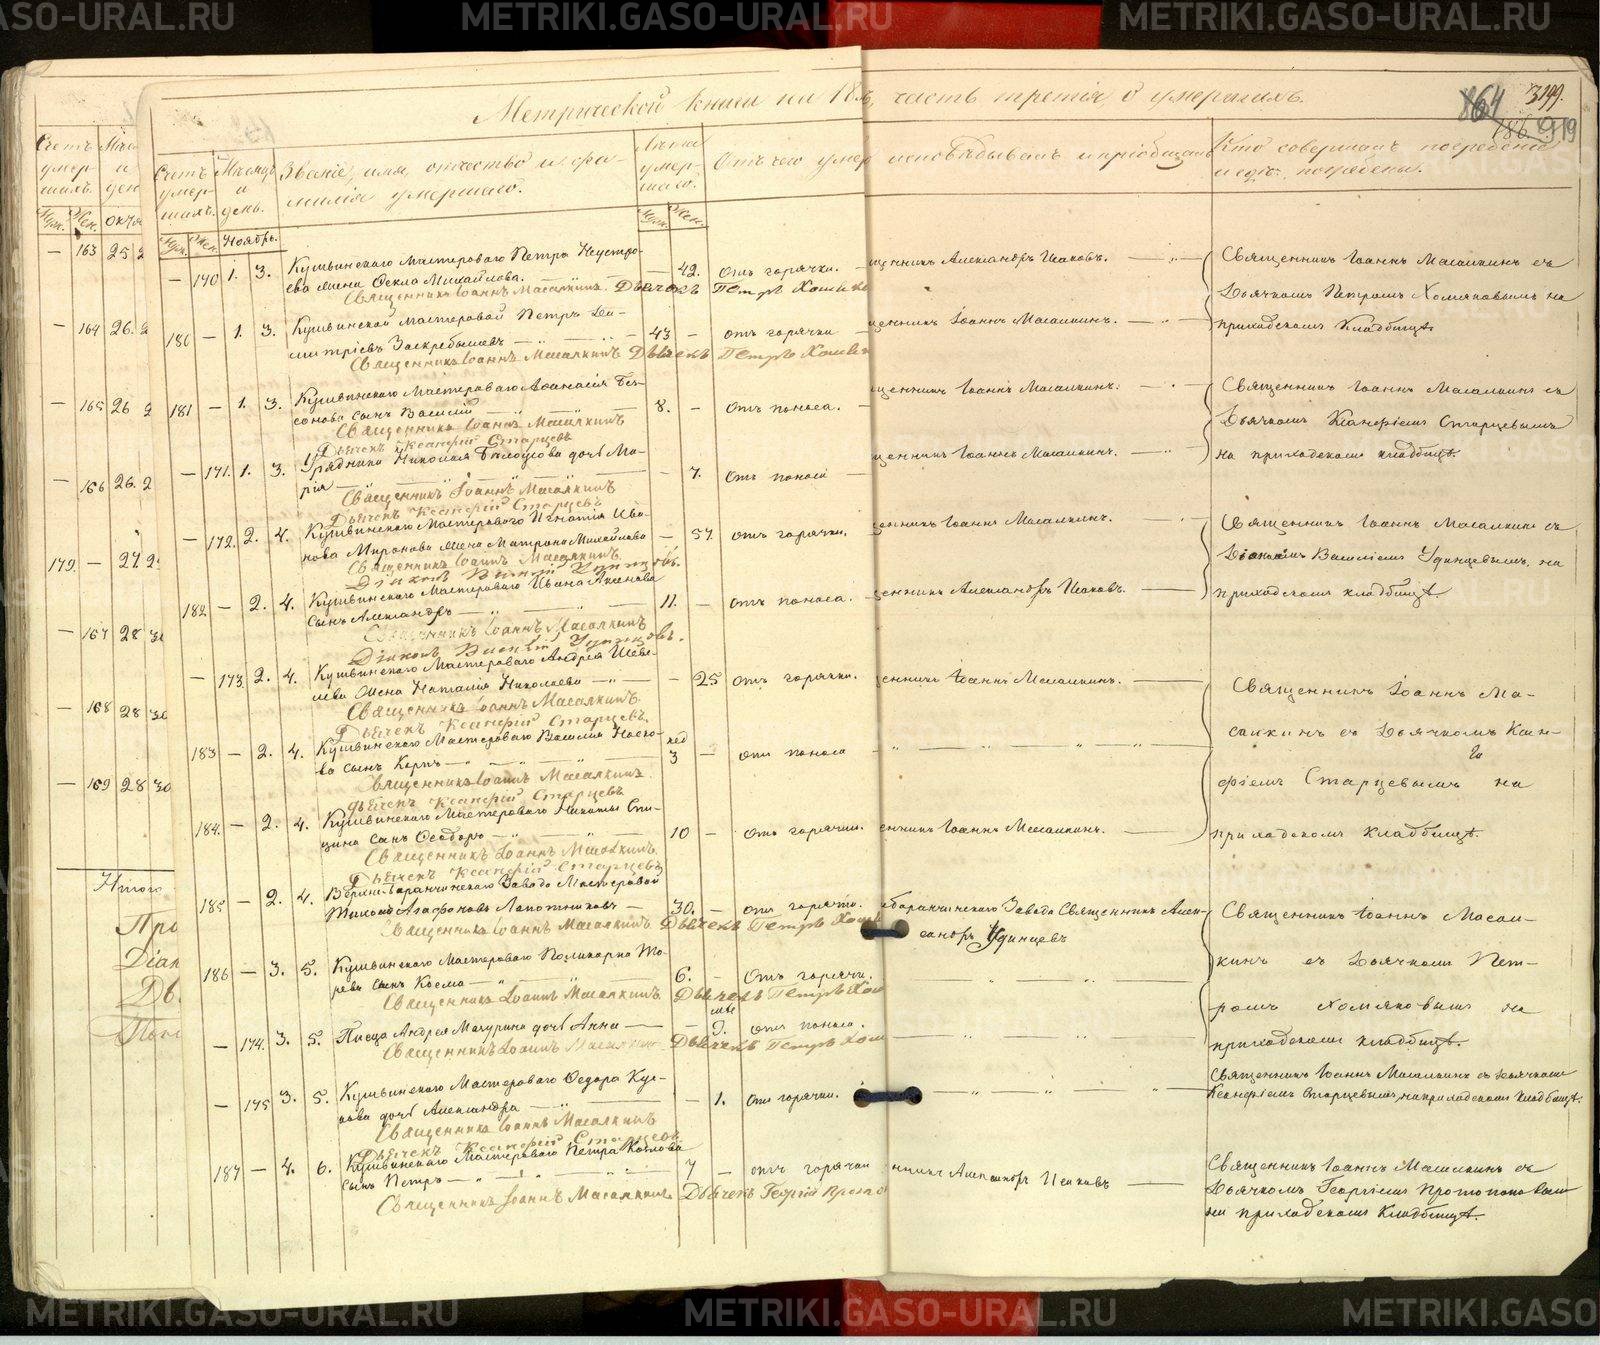 METRIKI.GASO-URAL.RU
Метрической книги на 18 часть третія о умершихъ.
864
3199.
919
Счетъ умершихъ.
Мѣсяцъ и день.
Званіе, имя, отчество и фамилія умершаго.
Лѣта умершаго.
Отъ чего умеръ
исповѣдывалъ и пріобщалъ
Кто совершалъ погребеніе и гдѣ погребены.
Муж. Жен. Ноябрь. Муж. Жен.
— 163 25
— 164 26.
— 165 26
— 166 26.
179. — 27
— 167 28
— 168 28 30
— 169 28 30
Итого
— 170 1. 3. Кушвинскаго Мастероваго Петра Неустро-
ева жена Фекла Михайлова. — 42. отъ горячки. Александръ Исаковъ.
Священникъ Іоаннъ Масалкинъ. Дьячекъ Петръ
Священникъ Іоаннъ Масалкинъ съ
Дьячкомъ Петромъ Хомяковымъ на
приходскомъ Кладбищѣ.
180 — 1. 3. Кушвинской Мастеровой Петръ Ди-
митріевъ 43 — отъ горячки Іоаннъ Масалкинъ.
Священникъ Іоаннъ Масалкинъ Дьячекъ Петръ
181 — 1. 3. Кушвинскаго Мастероваго Аѳанасія
сынъ Василій 8. — отъ поноса. Іоаннъ Масалкинъ.
Священникъ Іоаннъ Масалкинъ
Дьячекъ Ксанфій Старцевъ
Священникъ Іоаннъ Масалкинъ съ
Дьячкомъ Ксанфіемъ Старцевымъ
на приходскомъ кладбищѣ.
— 171. 1. 3. Урядника Николая Бѣлоусова дочь Ма-
рія — 7. отъ поноса Іоаннъ Масалкинъ.
Священникъ Іоаннъ Масалкинъ
Дьячекъ Ксанфій Старцевъ
— 172. 2. 4. Кушвинскаго Мастероваго Игнатія Ива-
нова Миронова жена Матрона Михайлова — 57 отъ горячки. Іоаннъ Масалкинъ.
Священникъ Іоаннъ Масалкинъ.
Діаконъ Удинцовъ.
Священникъ Іоаннъ Масалкинъ съ
Діакономъ Василіемъ Удинцевымъ, на
приходскомъ кладбищѣ.
182 — 2. 4. Кушвинскаго Мастероваго Ивана
сынъ Александръ — 11. — отъ поноса. Александръ Исаковъ.
Священникъ Іоаннъ Масалкинъ
Діаконъ Удинцовъ.
— 173. 2. 4. Кушвинскаго Мастероваго Андрея Шеве-
лева жена Наталія Николаева — 25 отъ горячки. Іоаннъ Масалкинъ.
Священникъ Іоаннъ Масалкинъ.
Дьячекъ Ксанфій Старцевъ.
Священникъ Іоаннъ Ма-
салкинъ съ Дьячкомъ Ксан-
фіемъ Старцевымъ на
приходскомъ кладбищѣ.
183 — 2. 4. Кушвинскаго Мастероваго Василія Носко-
ва сынъ Карпъ — нед 3 — отъ поноса
Священникъ Іоаннъ Масалкинъ.
Дьячекъ Ксанфій Старцевъ
184. — 2. 4. Кушвинскаго Мастероваго Никиты Спи-
цина сынъ Ѳеодоръ — 10 — отъ горячки. Іоаннъ Масалкинъ.
Священникъ Іоаннъ Масалкинъ.
Дьячекъ Ксанфій Старцевъ
185 — 2. 4. Верхне-Баранчинскаго Завода Мастеровой
Агафоновъ Лапотниковъ — 30. — отъ горячки. Баранчинскаго Завода Священникъ Алек-
сандръ Удинцевъ
Священникъ Іоаннъ Масалкинъ Дьячекъ Петръ
Священникъ Іоаннъ Масал-
кинъ съ Дьячкомъ Пет-
ромъ Хомяковымъ на
приходскомъ кладбищѣ.
186 — 3. 5. Кушвинскаго Мастероваго Поликарпа
сынъ Косма — 6. — отъ горячки.
Священникъ Іоаннъ Масалкинъ Дьячекъ Петръ
— 174. 3. 5. Писца Андрея Мачурина дочь Анна — 9. отъ поноса.
Священникъ Іоаннъ Масалкинъ. Дьячекъ Петръ
— 175 3. 5. Кушвинскаго Мастероваго Ѳедора
дочь Александра — 1. отъ горячки.
Священникъ Іоаннъ Масалкинъ
Дьячекъ Ксанфій Старцевъ
Священникъ Іоаннъ Масалкинъ съ Дьячкомъ
Ксанфіемъ Старцевымъ, на приходскомъ кладбищѣ.
187 — 4. 6. Кушвинскаго Мастероваго Петра Козлова
сынъ Петръ — 7 — отъ горячки Александръ Исаковъ
Священникъ Іоаннъ Масалкинъ Дьячекъ Георгій
Священникъ Іоаннъ Масалкинъ съ
Дьячкомъ Георгіемъ Протопоповымъ
на приходскомъ Кладбищѣ.
METRIKI.GASO-URAL.RU